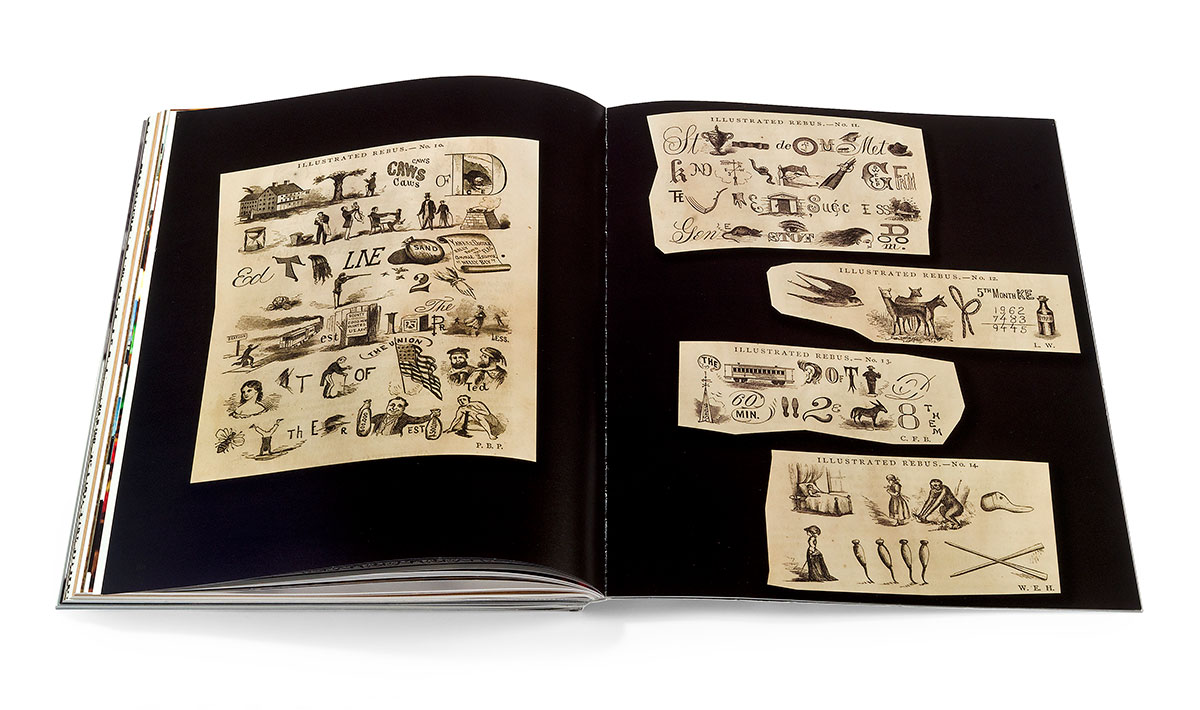 ILLUSTRATED REBUS.—No. 10.
CAWS
CAWS
Caws
OF D
Ed T LNE SAND
2
The
est
LESS.
THE UNION
T OF
Ted
Th E R EST
P. B. P.
ILLUSTRATED REBUS.—No. 11.
St de O M Met
KND G FROM
THE NE Suçc ESS
Gen STUF D OO m.
ILLUSTRATED REBUS.—No. 12.
5TH MONTH KE
1962
7483
9445
L. W.
ILLUSTRATED REBUS.—No. 13.
THE OFT D
60 MIN. 2 8 THEM
C. F. B.
ILLUSTRATED REBUS.—No. 14.
W. E. H.